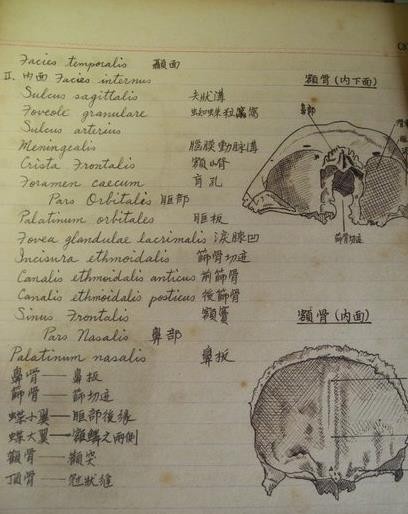 Facies temporalis 顳面
II. 内面 Facies internus
Sulcus sagittalis 矢狀溝
Foveole granulare 蜘蛛粒窩
Sulcus arterius
Meningealis 腦膜動脈溝
Crista Frontalis 額嵴
Foramen caecum 盲孔
Pars Orbitalis 眶部
Palatinum orbitales 眶板
Fovea glandulae lacrimalis 淚腺凹
Incisura ethmoidalis 篩骨切迹
Canalis ethmoidalis anticus 前篩骨
Canalis ethmoidalis posticus 後篩骨
Sinus Frontalis 額竇
Pars Nasalis 鼻部
Palatinum nasalis 鼻板
鼻骨——鼻板
篩骨——篩切迹
蝶小翼——眶部後緣
蝶大翼——額鱗之兩側
顴骨——顴突
頂骨——冠狀縫
額骨(内下面)
鼻部
篩骨切迹
額骨(内面)